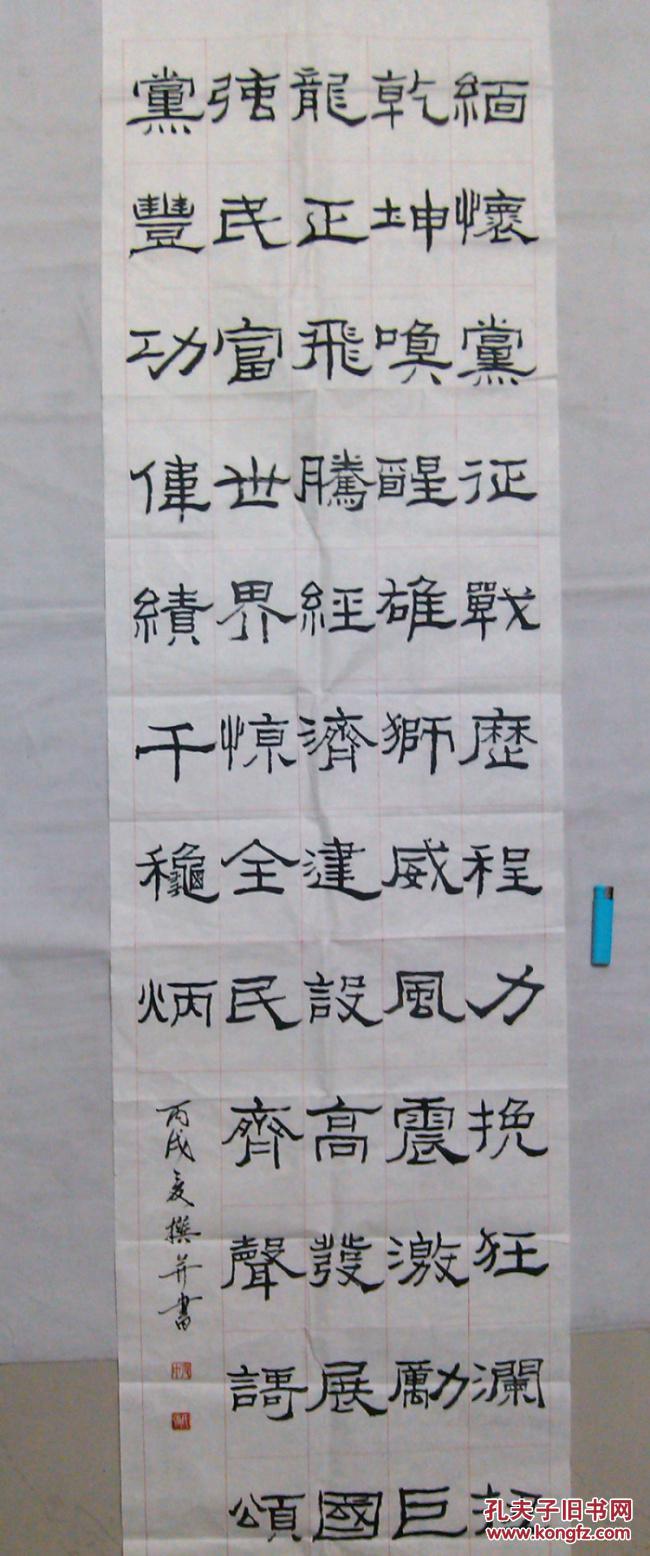 緬懷黨征戰歷程力挽狂瀾扭
乾坤喚醒雄獅威風震激勵巨
龍正飛騰經濟建設高發展國
強民富世界惊全民齊聲謌頌
黨豐功偉績千穐炳
丙戌夏撰并書
孔夫子旧书网
www.kongfz.com